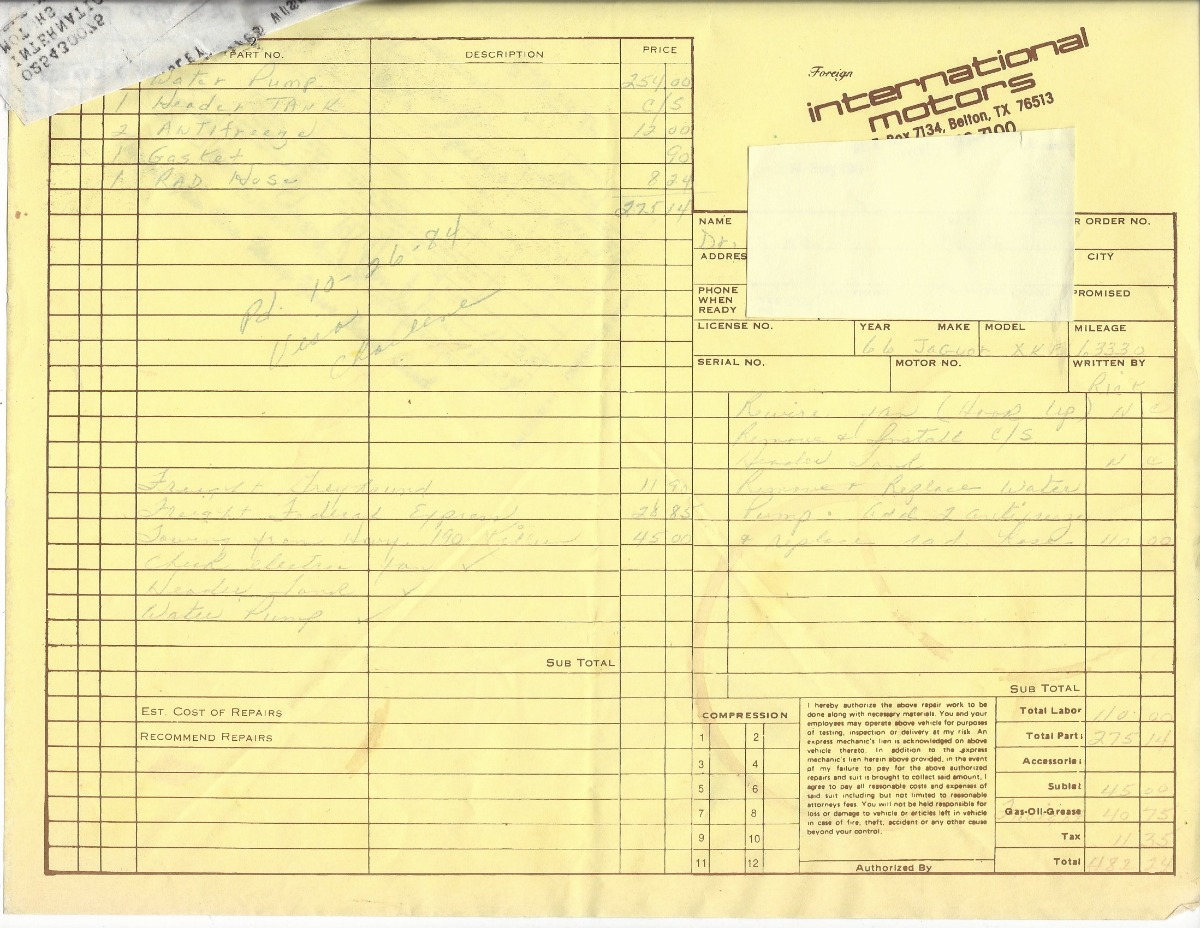 PART NO. DESCRIPTION PRICE
Water Pump 254.00
1 Header TANK C/S
2 Antifreeze 12 00
1 Gasket 90
1 RAD Hose 8 24
275 14
Pd. 10-26-84
Visa
Charlene
Freight Greyhound 11 90
Freight Federal Express 28 85
Towing from Hwy. 190 Killeen 45 00
Check electric fan ✓
Header Tank ✓
Water Pump ✓
SUB TOTAL
EST. COST OF REPAIRS
RECOMMEND REPAIRS
Foreign
international
motors
Box 7134, Belton, TX 76513
7100
NAME
R ORDER NO.
Dr.
ADDRES
CITY
PHONE
WHEN
READY
PROMISED
LICENSE NO. YEAR MAKE MODEL MILEAGE
66 Jaguar XKE 63330
SERIAL NO. MOTOR NO. WRITTEN BY
Rick
Rewire fan (Hook Up) N C
Remove & Install C/S
Header Tank N C
Remove & Replace Water
Pump. Add 2 antifreeze
& replace rad. hose 110 00
SUB TOTAL
COMPRESSION
1 2
3 4
5 6
7 8
9 10
11 12
I hereby authorize the above repair work to be
done along with necessary materials. You and your
employees may operate above vehicle for purposes
of testing, inspection or delivery at my risk. An
express mechanic's lien is acknowledged on above
vehicle thereto. In addition to the express
mechanic's lien herein above provided, in the event
of my failure to pay for the above authorized
repairs and suit is brought to collect said amount, I
agree to pay all reasonable costs and expenses of
said suit including but not limited to reasonable
attorneys fees. You will not be held responsible for
loss or damage to vehicle or articles left in vehicle
in case of fire, theft, accident or any other cause
beyond your control.
Authorized By
Total Labor 110 00
Total Parts 275 14
Accessories
Sublet 45 00
Gas-Oil-Grease 40 75
Tax 11 35
Total 482 24